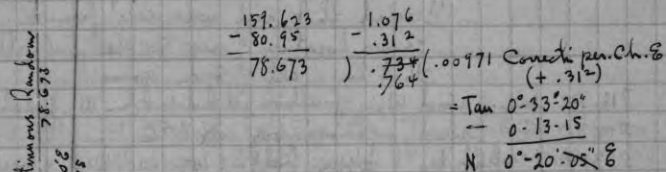 159.623
- 80.95
78.673
1.076
- .312
) .734 (.00971 Correcti per. Ch. E
.764
(+ .312)
= Tan 0°-33'-20"
- 0-13-15
N 0°-20'-05" E
Random
78.673